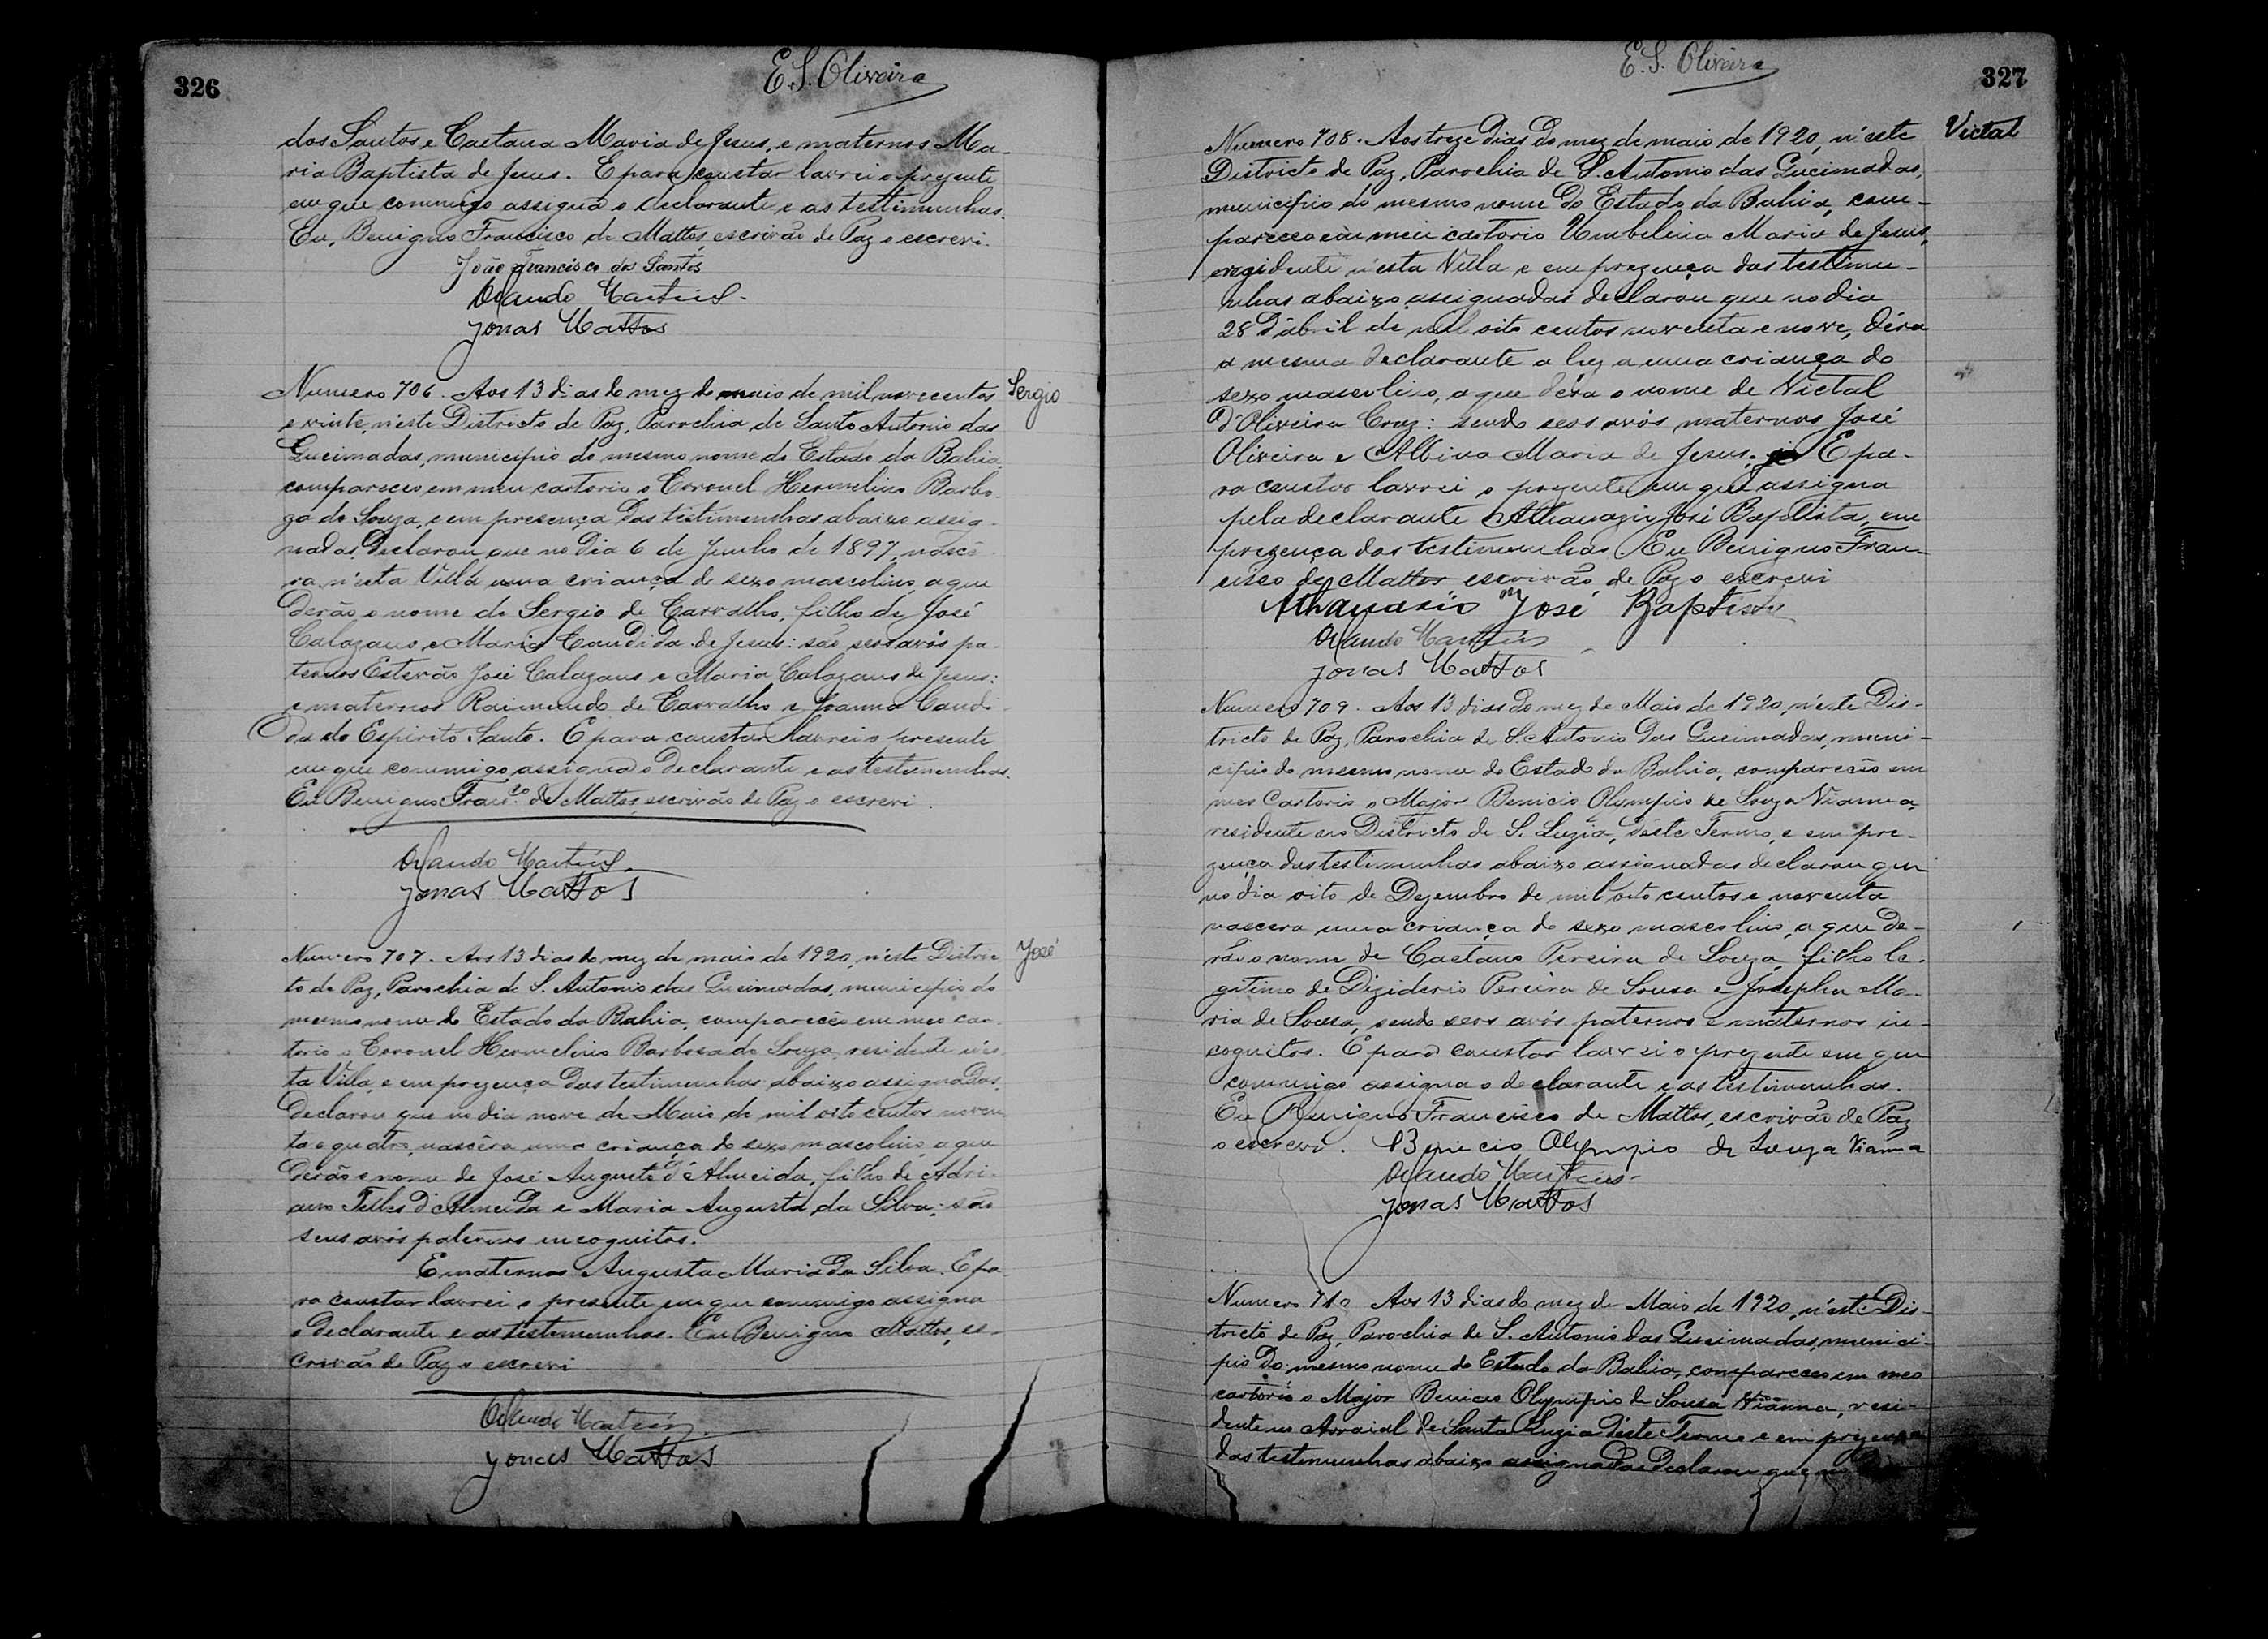 326
E. S. Oliveira
dos Santos e Caetana Maria de Jesus, e maternos Ma-
ria Baptista de Jesus. E para constar lavrei o prezente
em que commigo assigna o declarante e as testimunhas.
Eu, Benigno Francisco de Mattos, escrivão de Paz o escrevi.
João Francisco dos Santos
Orlando Martins.
Jonas Mattos
Numero 706. Aos 13 dias do mez de maio de mil novecentos
e vinte, n'este Districto de Paz, Parochia de Santo Antonio das
Queimadas, municipio do mesmo nome do Estado da Bahia,
compareceo em meu cartorio o Coronel Hermelino Barbo-
za de Souza, e em presença das testimunhas abaixo assig-
nadas, declarou que no dia 6 de Junho de 1897, nascê-
ra, n'esta Villa uma criança de sexo masculino, a que
derão o nome de Sergio de Carvalho, filho de José
Calazans e Maria Candida de Jesus: são seos avós pa-
ternos Estevão José Calazans e Maria Calazans de Jesus:
e maternos Raimundo de Carvalho e Joanna Candi-
da do Espirito Santo. E para constar lavrei o presente
em que commigo assigna o declarante e as testimunhas.
Eu Benigno Franc.co de Mattos, escrivão de Paz o escrevi.
Orlando Martins.
Jonas Mattos
Sergio
Numero 707. Aos 13 dias do mez de maio de 1920, n'este Distric-
to de Paz, Parochia de S. Antonio das Queimadas, municipio do
mesmo nome do Estado da Bahia, compareceo em meo car-
torio o Coronel Hermelino Barbosa de Souza, residente n'es-
ta Villa, e em prezença das testimunhas abaixo assignadas,
declarou que no dia nove de Maio de mil oito centos noven-
ta e quatro, nascêra uma criança do sexo masculino, a que
derão o nome de José Augusto d'Almeida, filho de Adri-
ano Telles d'Almeida e Maria Augusta da Silva: são
seus avós paternos incognitos.
E maternos Augusta Maria da Silva. E pa-
ra constar lavrei o presente em que commigo assigna
o declarante e as testemunhas. Eu Benigno Mattos, es-
crivão de Paz o escrevi
Orlando Martins.
Jonas Mattos
José
E. S. Oliveira
327
Numero 708. Aos treze dias do mez de maio de 1920, n'este
Districto de Paz, Parochia de S. Antonio das Queimadas,
municipio do mesmo nome do Estado da Bahia, com-
pareceo em meu cartorio Umbelina Maria de Jesus,
rezidente n'esta Villa e em prezença das testimu-
nhas abaixo assignadas declarou que no dia
28 d'abril de mil oito centos noventa e nove, déra
a mesma declarante a luz a uma criança do
sexo masculino, a que déra o nome de Victal
d'Oliveira Cruz: sendo seos avós maternos José
Oliveira e Albina Maria de Jesus. E pa-
ra constar lavrei o prezente em que assigna
pela declarante Athanazio José Baptista, em
prezença das testimunhas. Eu Benigno Fran-
cisco de Mattos escrivão de Paz o escrevi
Athanasio José Baptista
Orlando Martins
Jonas Mattos
Victal
Numero 709. Aos 13 dias do mez de Maio de 1920, n'este Dis-
tricto de Paz, Parochia de S. Antonio das Queimadas, muni-
cipio do mesmo nome do Estado da Bahia, compareceo em
meo Cartorio o Major Benicio Olympio de Souza Vianna,
residente no Districto de S. Luzia, d'este Termo, e em pre-
zença das testimunhas abaixo assignadas declarou que
no dia oito de Dezembro de mil oito centos e noventa
nascera uma criança do sexo masculino, a que de-
rão o nome de Caetano Pereira de Souza, filho le-
gitimo de Diziderio Pereira de Sousa e Josepha Ma-
ria de Sousa, sendo seos avós paternos e maternos in-
cognitos. E para constar lavrei o prezente em que
commigo assigna o declarante e as testimunhas.
Eu Benigno Francisco de Mattos, escrivão de Paz
o escrevi. Benicio Olympio de Souza Vianna
Orlando Martins
Jonas Mattos
Numero 710 Aos 13 dias do mez de Maio de 1920, n'este Dis-
tricto de Paz, Parochia de S. Antonio das Queimadas, munici-
pio do mesmo nome do Estado da Bahia, compareceo em meo
cartorio o Major Benicio Olympio de Sousa Vianna, resi-
dente no Arraial de Santa Luzia d'este Termo e em prezença
das testimunhas abaixo assignadas declarou que no dia